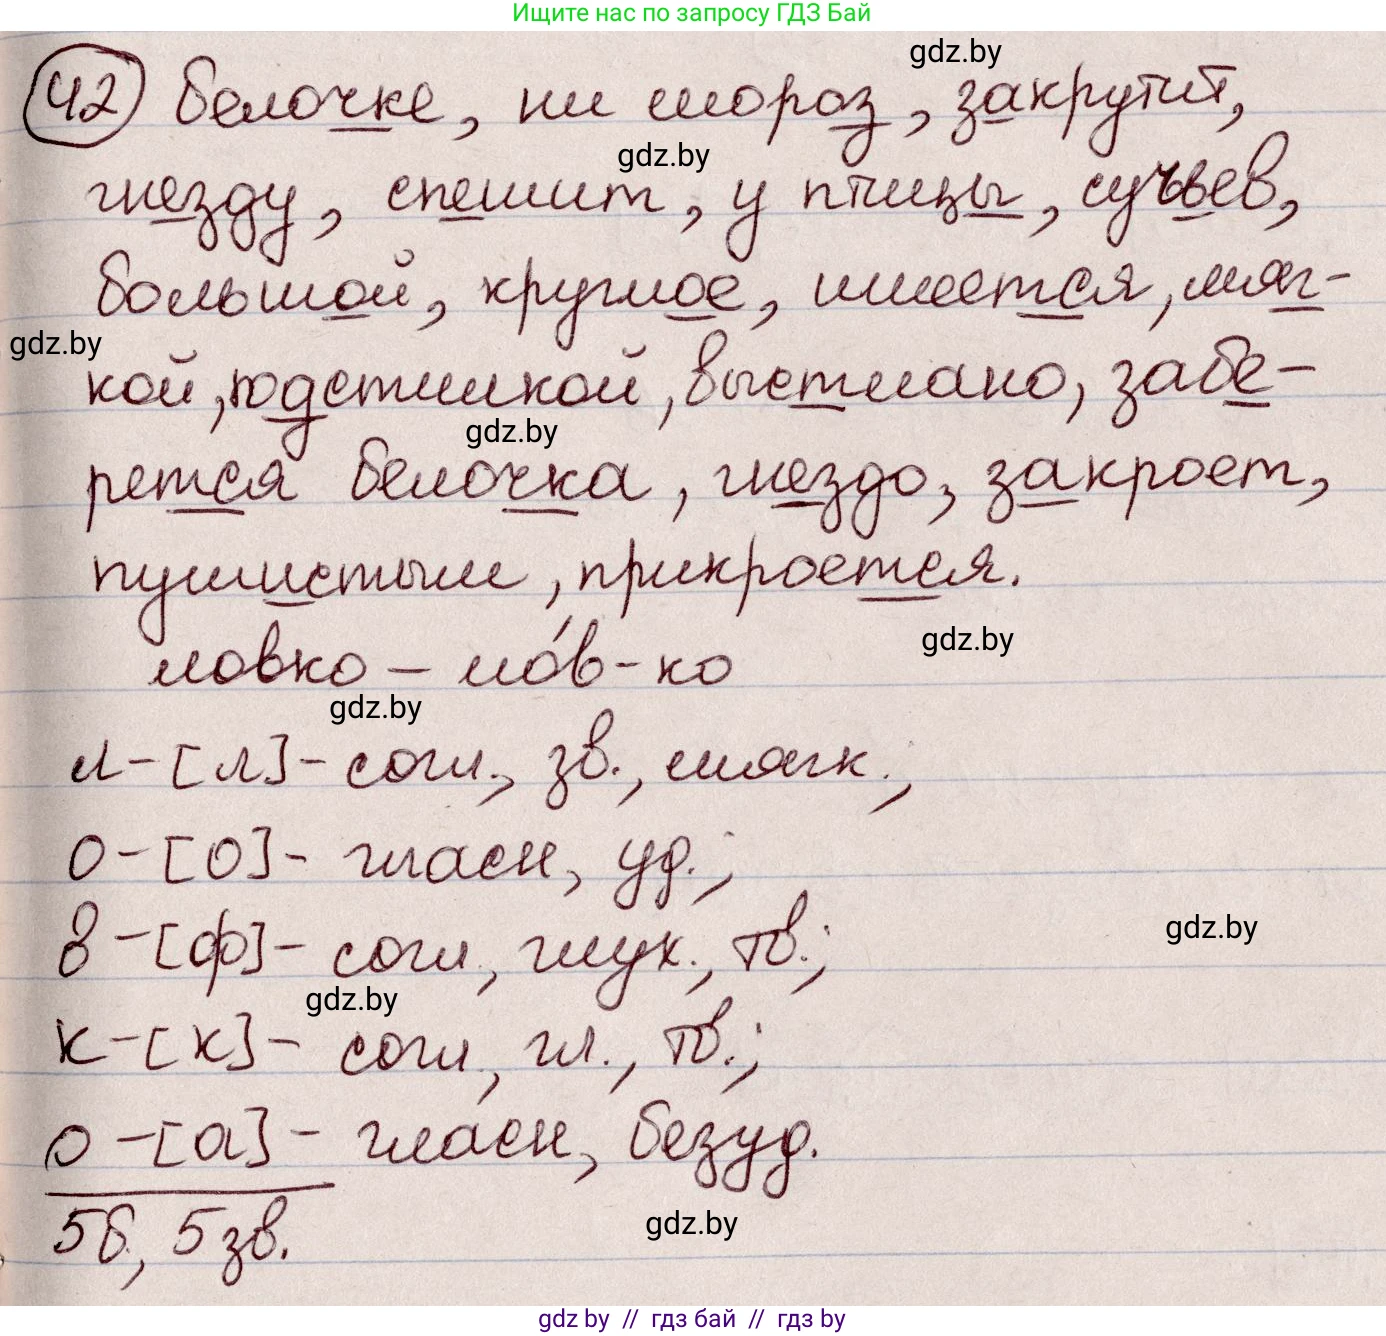 Ищите нас по запросу ГДЗ Бай
gdz.by
42 белочке, ни мороз, закрутит,
gdz.by
гнезду, спешит, у птицы, сучьев,
большой, круглое, имеется, мяг-
gdz.by
кой, подстилкой, выстлано, забе-
gdz.by
рется белочка, гнездо, закроет,
пушистым, прикроется.
gdz.by
ловко – ло́в-ко
gdz.by
л-[л]- согл., зв., мягк.;
о-[о]- гласн, уд.;
gdz.by
в-[ф]- согл., глух., тв.;
gdz.by
к-[к]- согл., гл., тв.;
о-[а]- гласн, безуд.
gdz.by
5б., 5 зв.
gdz by // гдз бай // гдз by